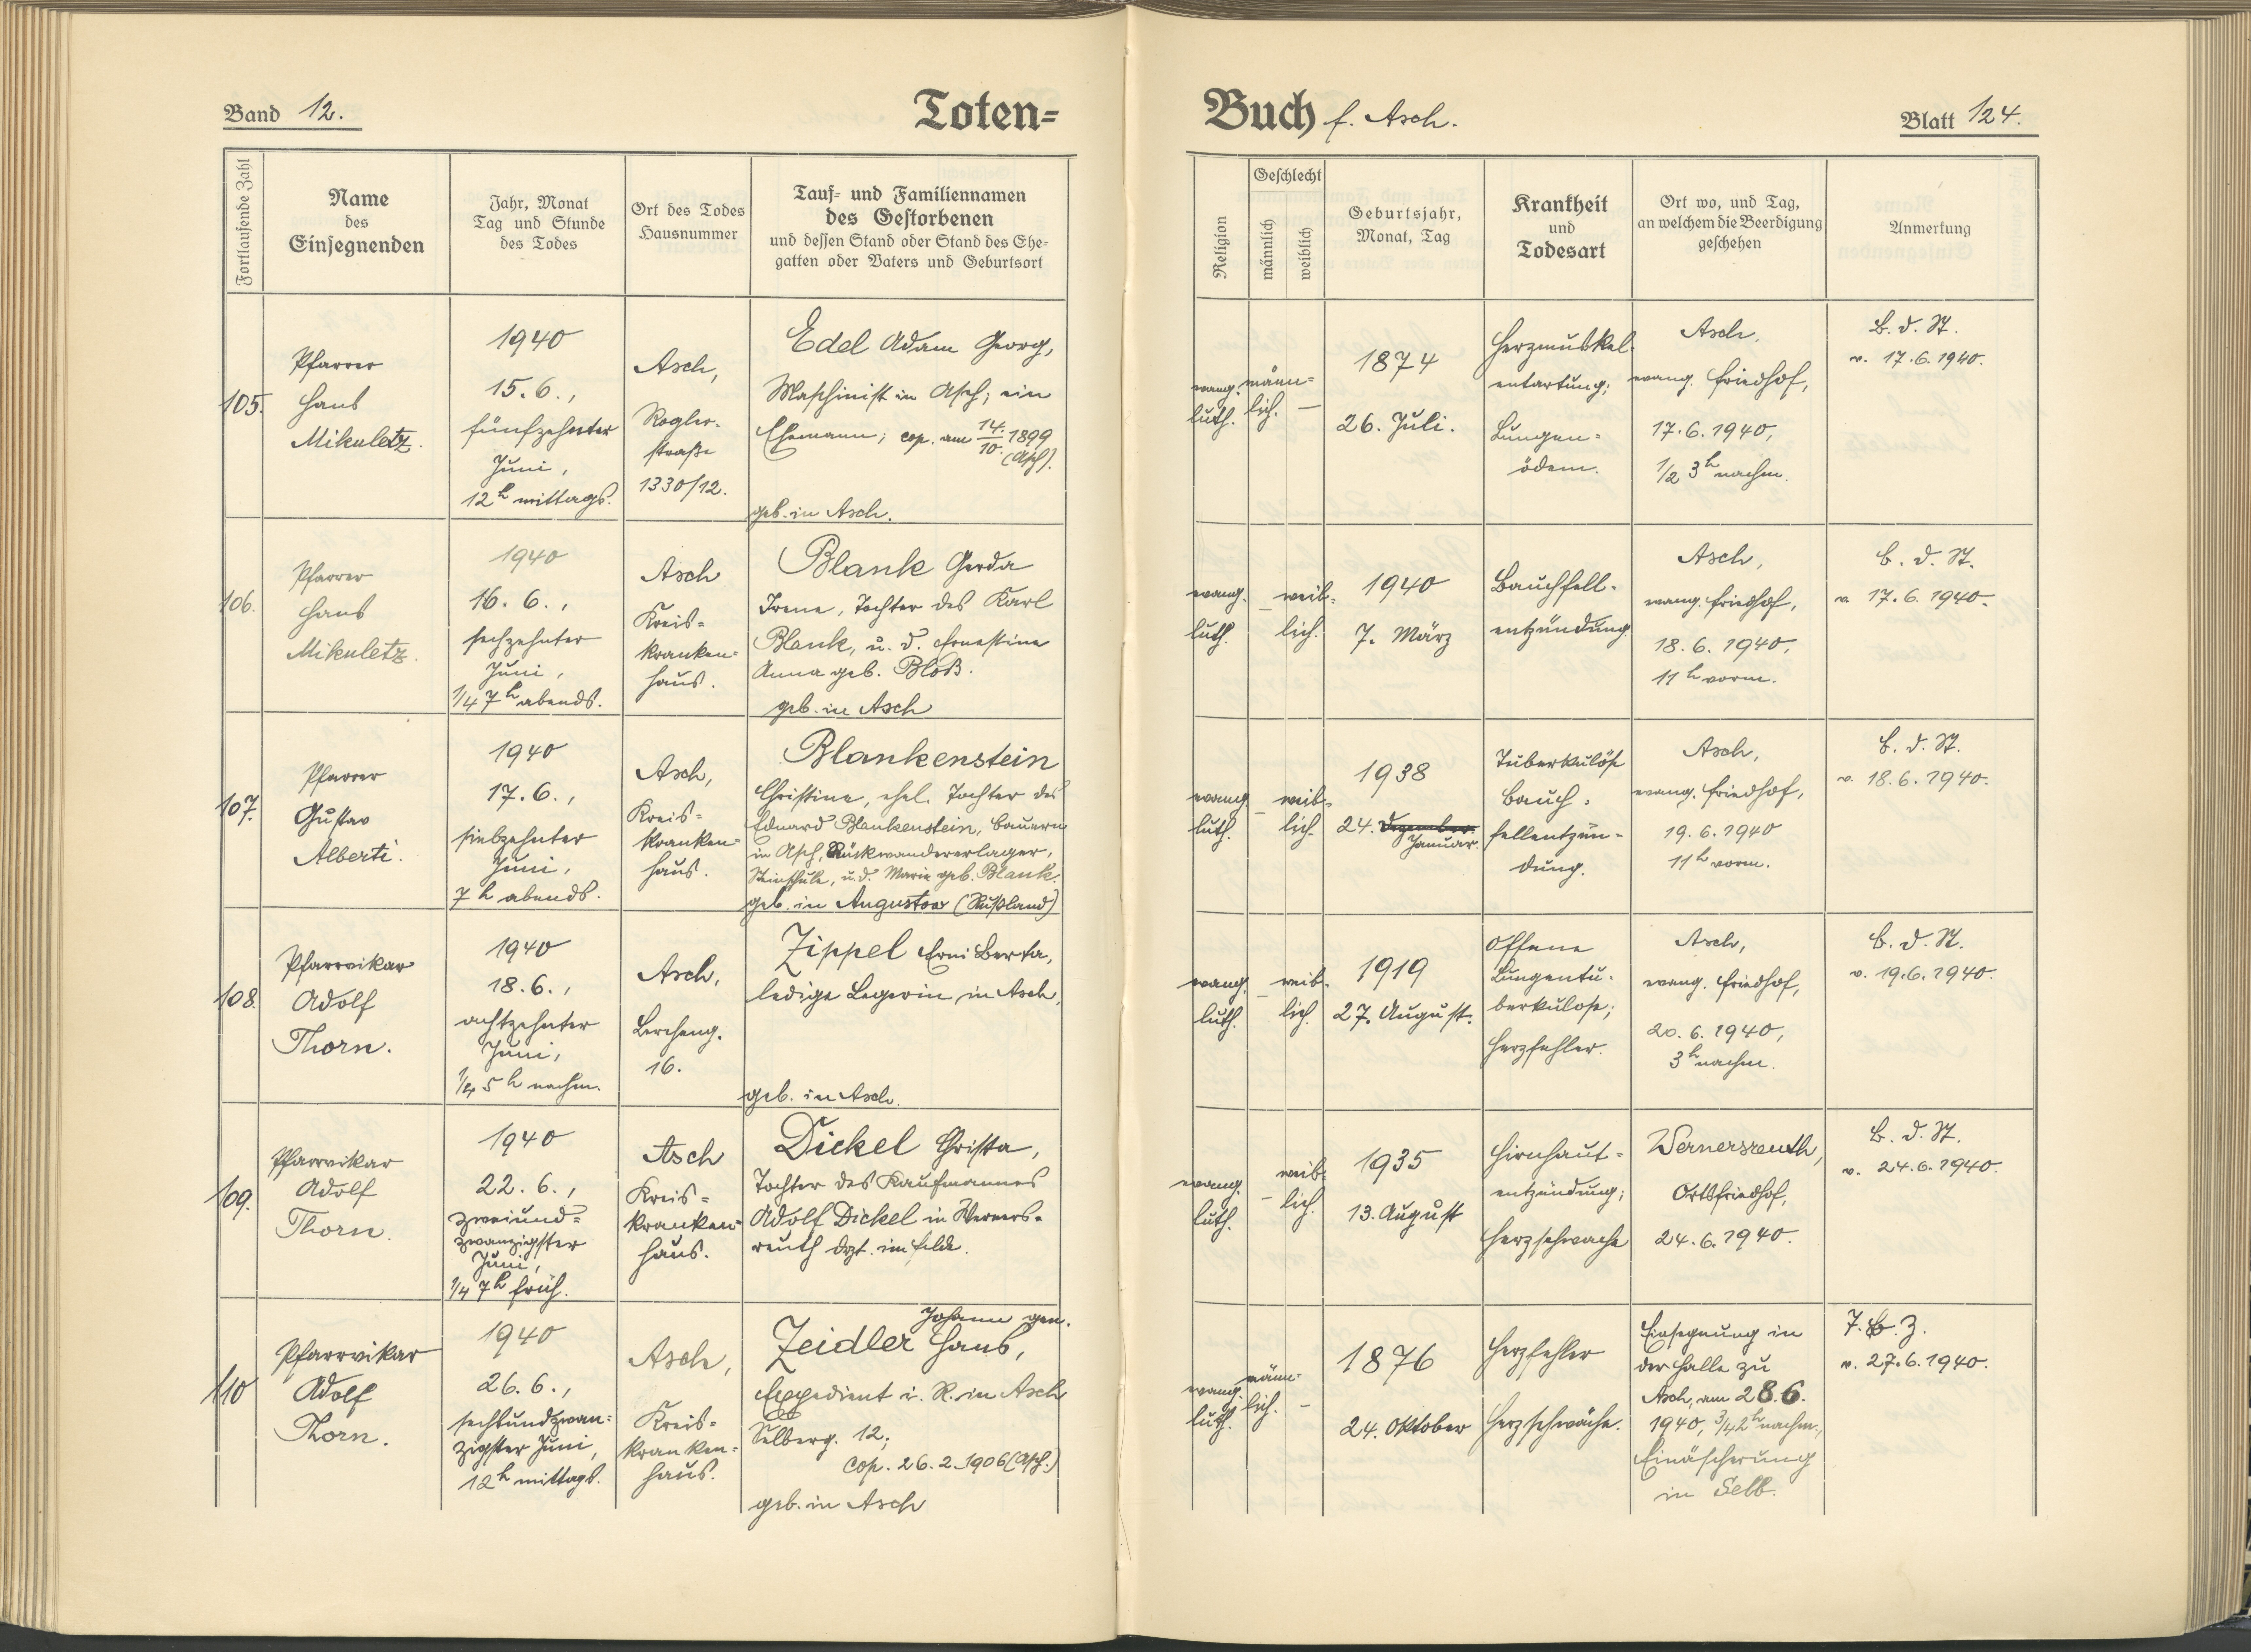 Band 12.
Toten=
Buch f. Asch.
Blatt 124.
Fortlaufende Zahl
Name
des
Einsegnenden
Jahr, Monat
Tag und Stunde
des Todes
Ort des Todes
Hausnummer
Tauf= und Familiennamen
des Gestorbenen
und dessen Stand oder Stand des Ehe=
gatten oder Vaters und Geburtsort
Religion
Geschlecht
männlich
weiblich
Geburtsjahr,
Monat, Tag
Krankheit
und
Todesart
Ort wo, und Tag,
an welchem die Beerdigung
geschehen
Anmerkung
105.
Pfarrer
Hans
Mikuletz.
1940
15.6.,
fünfzehnter
Juni,
12 h mittags.
Asch,
Rogler-
straße
1330/12.
Edel Adam Georg,
Maschinist in Asch; ein
Ehemann; cop. am 14./10. 1899
(Asch).
geb. in Asch.
evang.
luth.
männ=
lich.
—
1874
26. Juli.
Herzmuskel-
entartung;
Lungen=
ödem.
Asch,
evang. Friedhof,
17.6.1940,
1/2 3 h nachm.
B. d. St.
v. 17.6.1940.
106.
Pfarrer
Hans
Mikuletz.
1940
16.6.,
sechzehnter
Juni,
1/4 7 h abends.
Asch
Kreis=
kranken=
haus.
Blank Gerda
Irene, Tochter des Karl
Blank, u. d. Ernestine
Anna geb. Bloß.
geb. in Asch
evang.
luth.
—
weib=
lich.
1940
7. März
Bauchfell=
entzündung
Asch,
evang. Friedhof,
18.6.1940,
11 h vorm.
B. d. St.
v. 17.6.1940.
107.
Pfarrer
Gustav
Alberti.
1940
17.6.,
siebzehnter
Juni,
7 h abends.
Asch,
Kreis=
kranken=
haus.
Blankenstein
Christine, ehel. Tochter des
Eduard Blankenstein, Bauern
in Asch, Rückwandererlager,
Steinschule, u. d. Marie geb. Blank.
geb. in Augustow (Rußland)
evang.
luth.
—
weib=
lich.
1938
24. Dezember.
Januar.
Tuberkulöse
Bauch=
fellentzün-
dung.
Asch,
evang. Friedhof,
19.6.1940
11 h vorm.
B. d. St.
v. 18.6.1940.
108.
Pfarrvikar
Adolf
Thorn.
1940
18.6.,
achtzehnter
Juni,
1/4 5 h nachm.
Asch,
Lercheng.
16.
Zippel Erni Berta,
ledige Legerin in Asch,
geb. in Asch.
evang.
luth.
—
weib=
lich.
1919
27. August.
Offene
Lungentu-
berkulose;
Herzfehler.
Asch,
evang. Friedhof,
20.6.1940,
3 h nachm.
B. d. St.
v. 19.6.1940.
109.
Pfarrvikar
Adolf
Thorn.
1940
22.6.,
zweiund=
zwanzigster
Juni,
1/4 7 h früh.
Asch
Kreis=
kranken=
haus.
Dickel Christa,
Tochter des Kaufmannes
Adolf Dickel in Werners-
reuth dzt. im Felde.
evang.
luth.
—
weib=
lich.
1935
13. August
Hirnhaut=
entzündung;
Herzschwäche
Wernersreuth,
Ortsfriedhof,
24.6.1940.
B. d. St.
v. 24.6.1940.
110
Pfarrvikar
Adolf
Thorn.
1940
26.6.,
sechsundzwan=
zigster Juni,
12 h mittags.
Asch,
Kreis=
kranken=
haus.
Johann gen.
Zeidler Hans,
Expedient i. R. in Asch
Selberg. 12;
cop. 26.2.1906 (Asch.)
geb. in Asch
evang.
luth.
männ=
lich.
—
1876
24. Oktober
Herzfehler
Herzschwäche.
Einsegnung in
der Halle zu
Asch, am 28.6.
1940, 3/4 2 h nachm.,
Einäscherung
in Selb.
v. 27.6.1940.